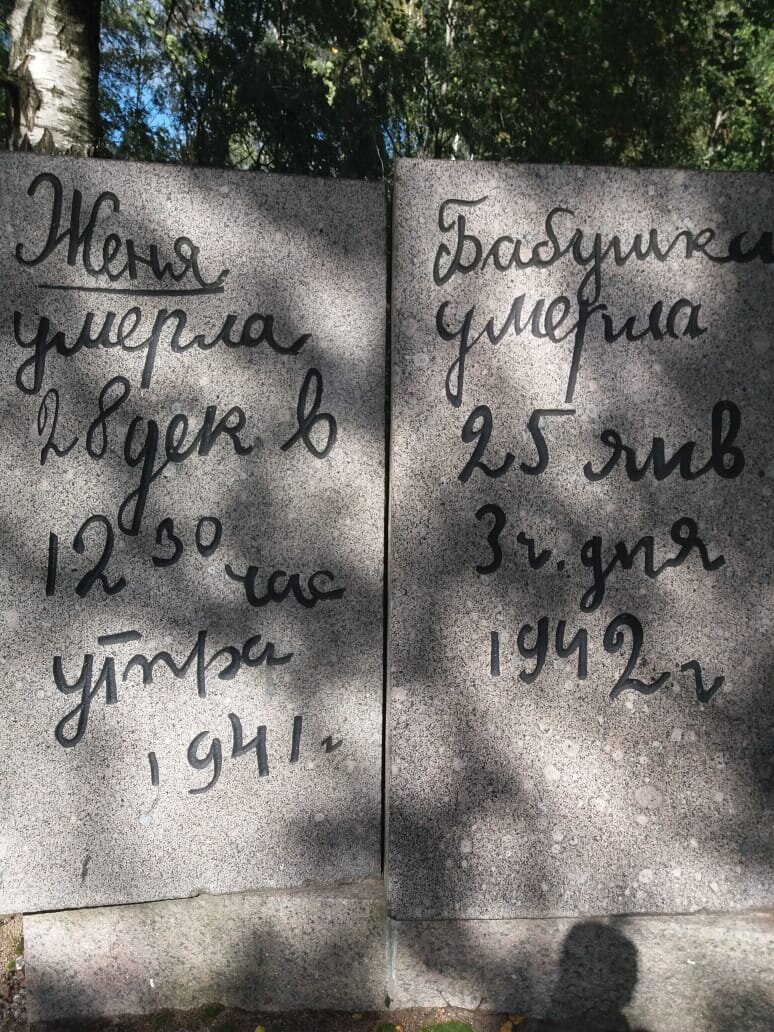 Женя
умерла
28 дек в
12 30 час
утра
1941 г
Бабушка
умерла
25 янв
3 ч. дня
1942 г